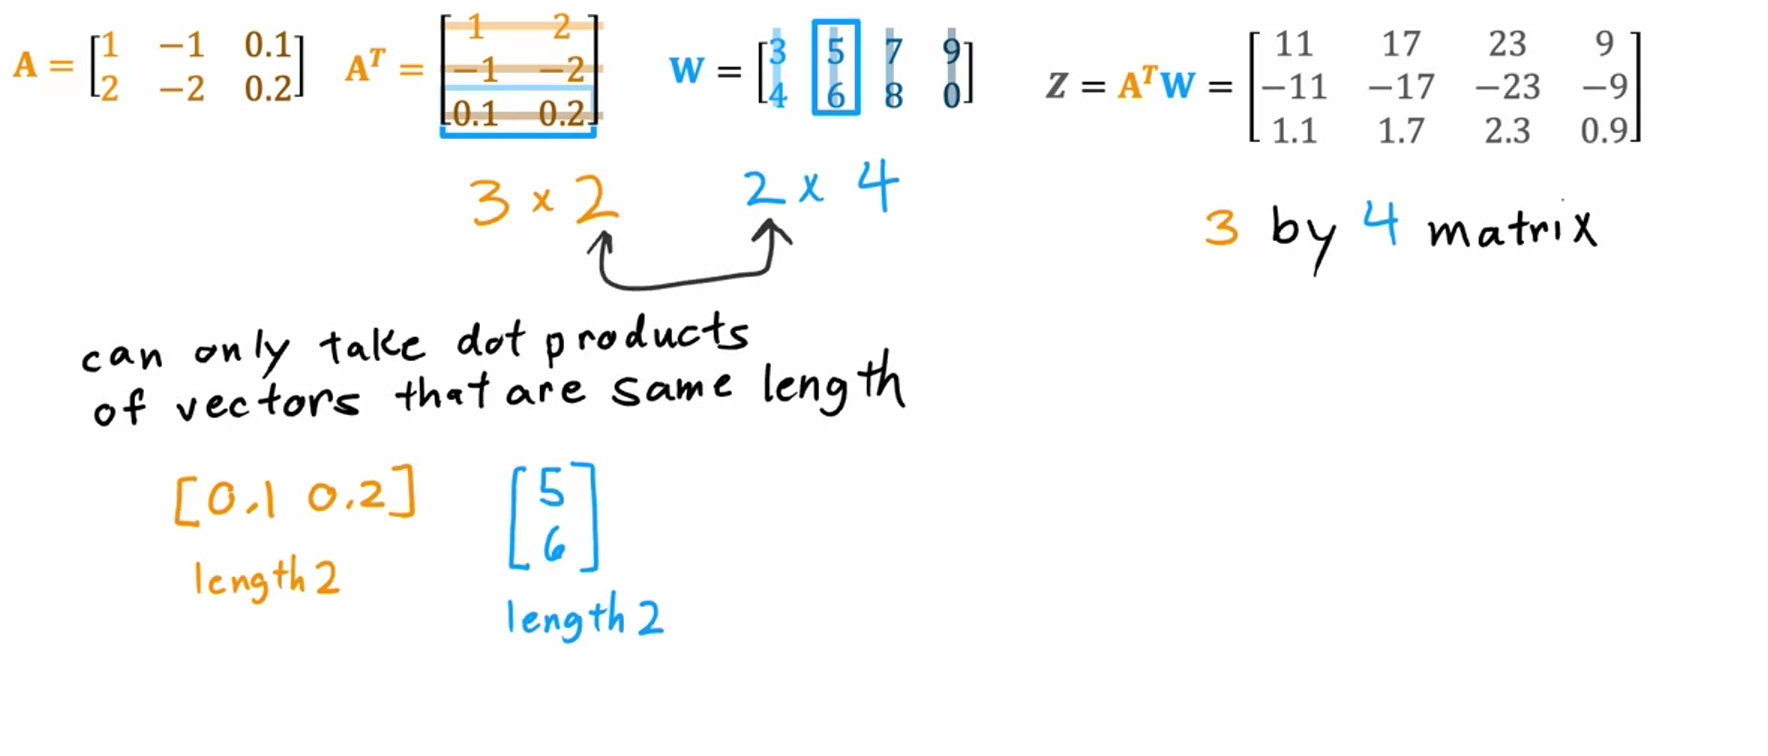 A = [1 −1 0.1
2 −2 0.2]
Aᵀ = [1 2
−1 −2
0.1 0.2]
W = [3 5 7 9
4 6 8 0]
Z = AᵀW = [11 17 23 9
−11 −17 −23 −9
1.1 1.7 2.3 0.9]
3 × 2
2 × 4
3 by 4 matrix
can only take dot products
of vectors that are same length
[0.1 0.2]
length 2
[5
6]
length 2